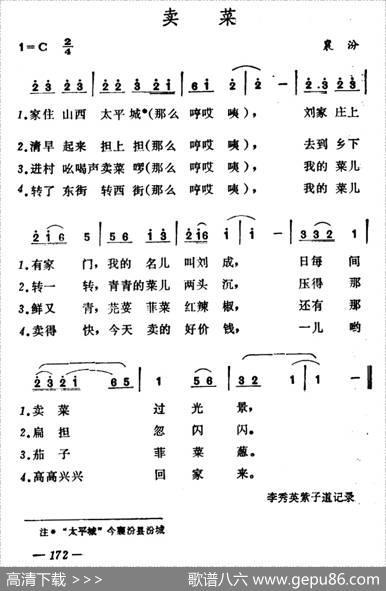 卖 菜
1=C 2/4 襄 汾
2 3 2 3 2 2 3 2 1 6 1 2 2 - 2. 3 2 3
1.家住 山西 太平 城*(那么 哼哎 咦), 刘家 庄上
2.清早 起来 担上 担(那么 哼哎 咦), 去到 乡下
3.进村 吆喝声卖菜 啰(那么 哼哎 咦), 我的 菜儿
4.转了 东街 转西 街(那么 哼哎 咦), 我的 菜儿
2 1 6 5 5 5 6 1 3 2 1 6 1 1 - 3 3 2 1
1.有家 门,我的 名儿 叫刘 成, 日每 间
2.转一 转,青青的菜儿 两头 沉, 压得 那
3.鲜又 青,芫荽 菲菜 红辣 椒, 还有 那
4.卖得 快,今天 卖的 好价 钱, 一儿 哟
2 3 2 1 6 5 1 5 6 3 2 1 1 -
1.卖 菜 过 光 景,
2.扁 担 忽 闪 闪。
3.茄 子 菲 菜 葱。
4.高高兴兴 回 家 来。
李秀英紫子道记录
注* “太平城”今襄汾县汾城
— 172 —
高清下载 >>> 歌谱八六 www.gepu86.com